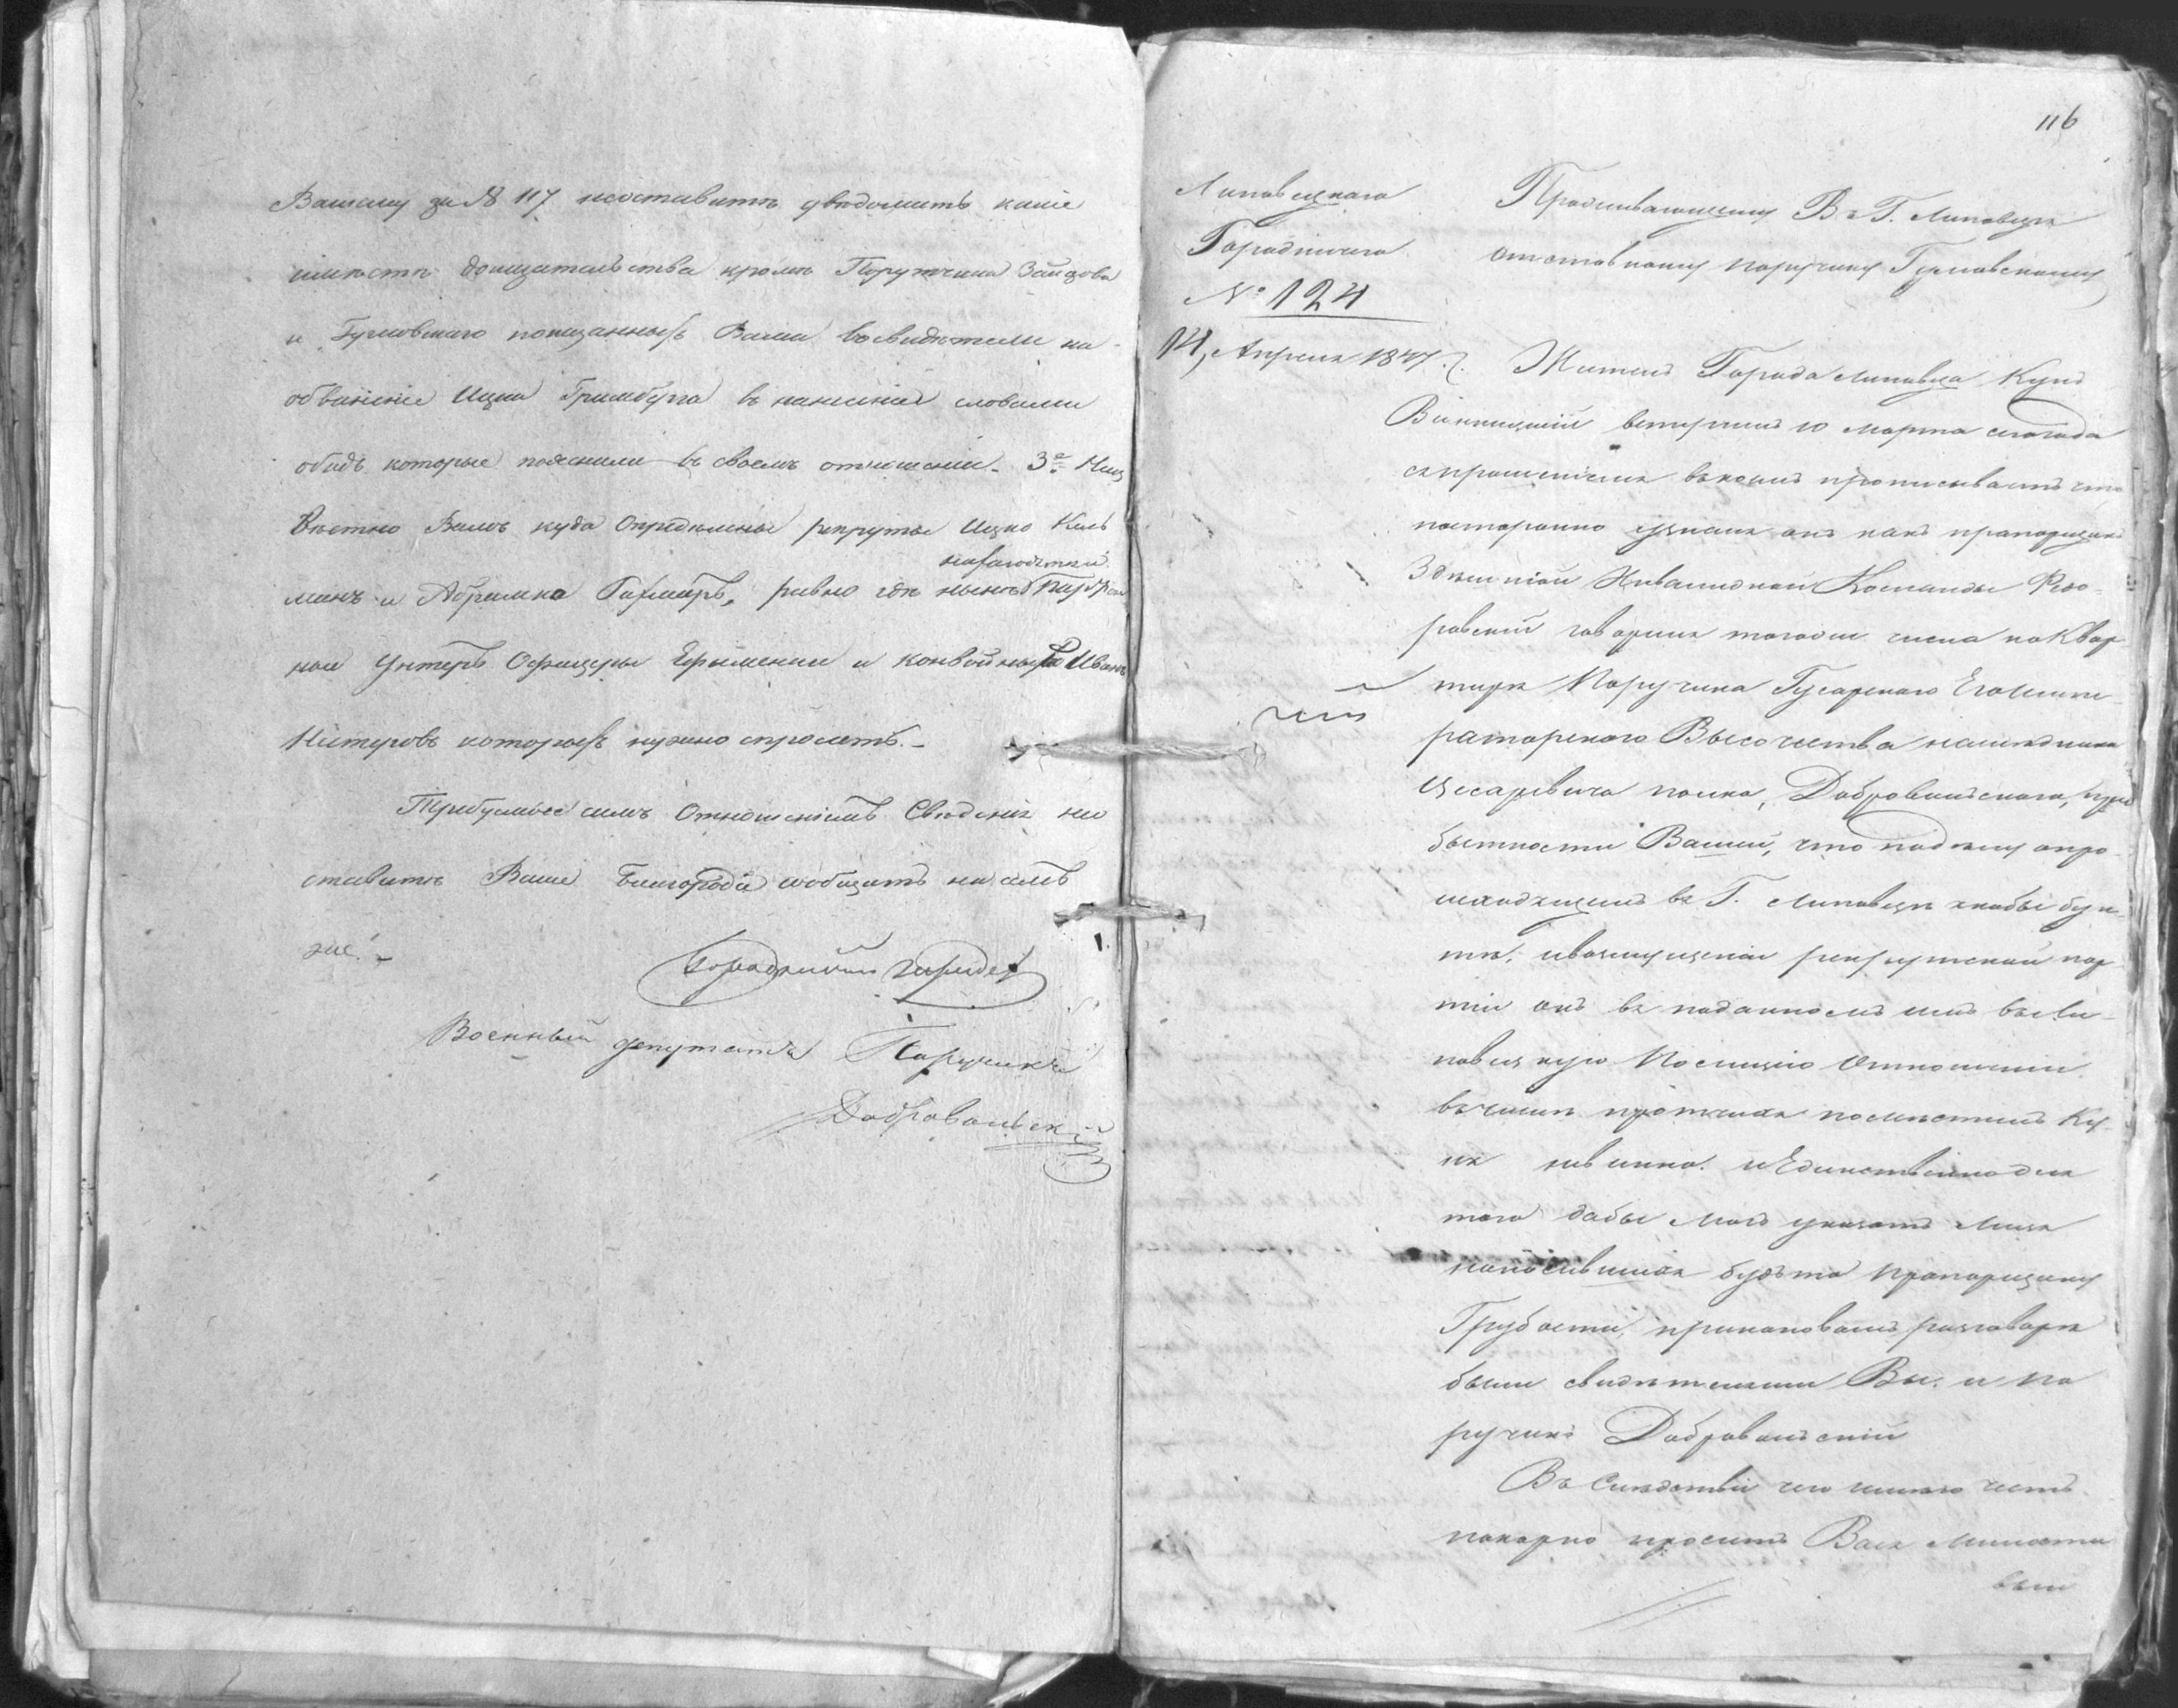 Вашему за № 117 неоставить уведомить какіе
имѣсте доказательства кромѣ Поручика Зайцова
и Гурковскаго показанныхъ Вами во свидѣтели на
обвиненіе Ицка Гринберга въ нанесеніи словами
обидъ которые пояснили въ своемъ отношеніи. 3е Неиз
вѣстно Вамъ куда Опредѣлены рекруты Ицко Кель
манъ и Абрамко равно гдѣ нынѣ находятся
ные Унтеръ Офицеры Ефименко и конвойный Иванъ
Нестеровъ которыхъ нужно спросить.
Требуемые симъ Отношеніемъ Свѣденія не
ставить Ваше Благородіе сообщить на семъ
же.
Городничій
Военный депутатъ Поручикъ
Добровольскій
116
Липовецкаго
Городничаго
№ 124
14, Апреля 1847 г.
Проживающему Въ Г. Липовцѣ
отставному поручику Гурковскому
Житель Города Липовца Кунъ
Винницкій вступилъ 10 Марта сего года
съ прошеніемъ въ коемъ прописываетъ что
посторонно узналъ онъ какъ прапорщикъ
Здешней Инвалидной Команды Фео-
ровскій говорилъ тогоже числа на Квар
тирѣ Поручика Гусарскаго Его Импе
раторскаго Высочества наслѣдника
Цесаревича полка, Добровольскаго, при
бытности Вашей, что по дѣлу о про
исходящемъ въ Г. Липовцѣ якобы бун
тѣ, и возмущеніи рекрутской пар
тіи онъ въ поданномъ имъ въ Ли
повецкую Полицію Отношеніи
въ числѣ протчихъ помѣстилъ Ку
на невинно. и Единственно для
того дабы могъ указать Лица
наносившихъ будьто Прапорщику
Грубости, при каковомъ разговорѣ
были свидѣтелями Вы. и По
ручикъ Добровольскій
Въ Слѣдствіи чего имѣю честь
покорно просить Васъ Милости
вый